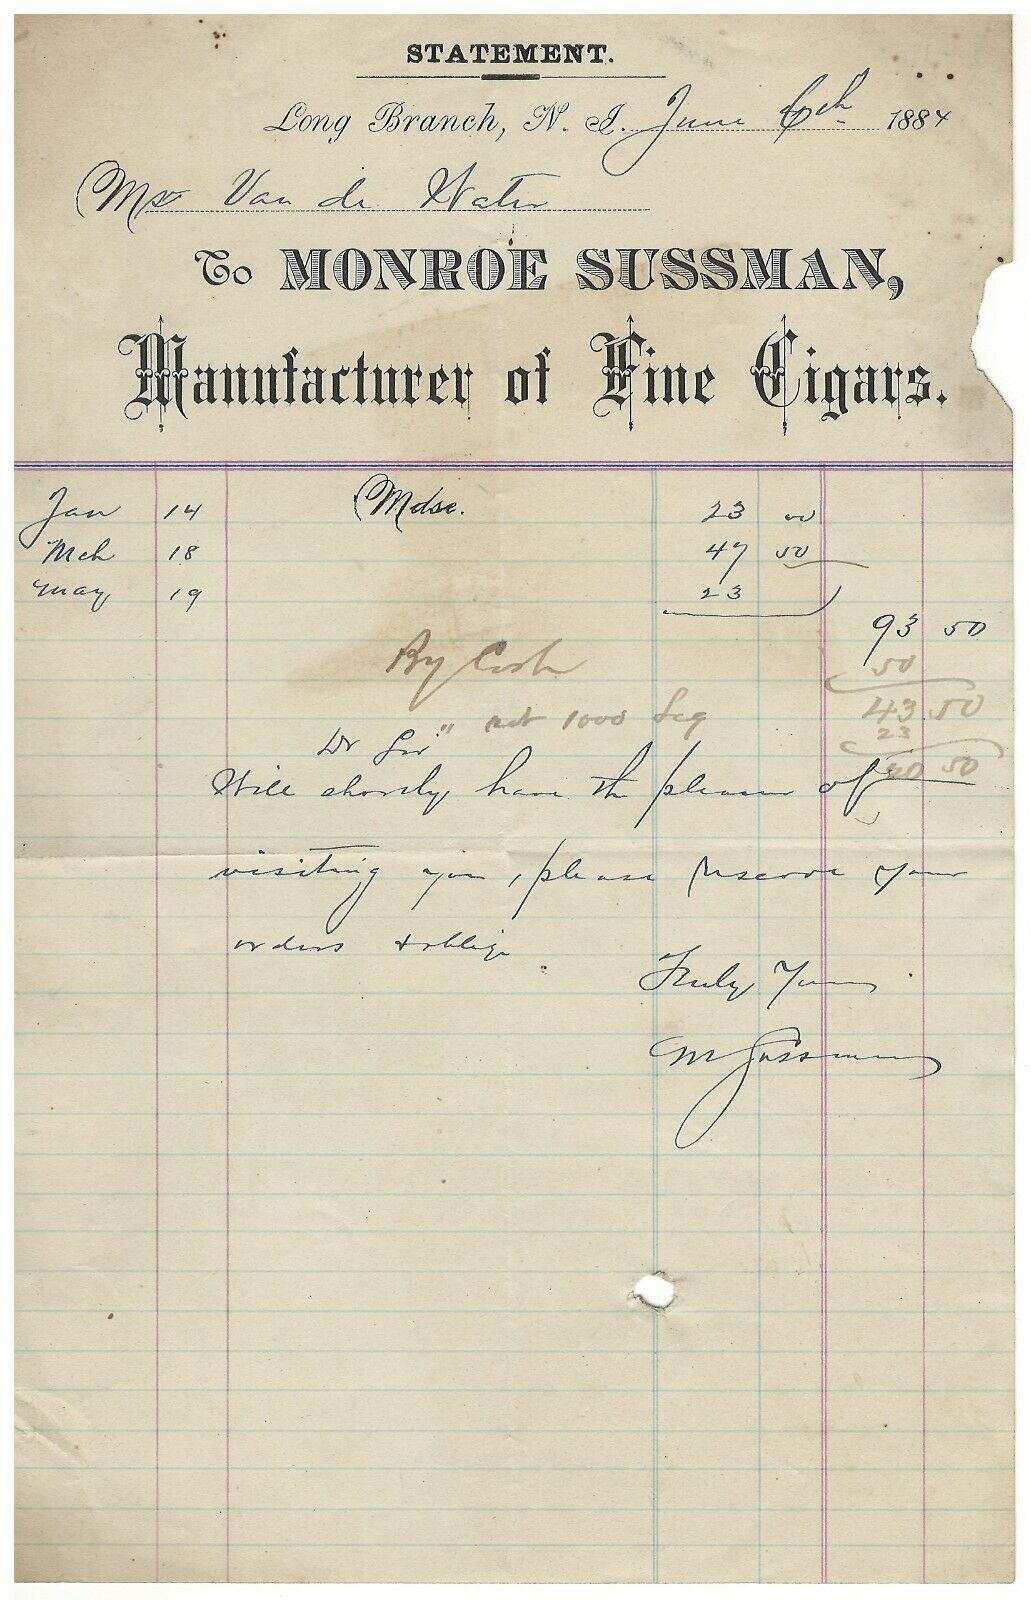 STATEMENT.
Long Branch, N. J. June 6th 1884
Mr Van de Water
To MONROE SUSSMAN,
Manufacturer of Fine Cigars.
Jan 14 Mdse. 23 00
Mch 18 47 50
May 19 23
93 50
By Cash 50
43 50
" net 1000 Seg 23
20 50
Dr Sir
Will shortly have the pleasure of
visiting you, please reserve your
orders & oblige
Truly Yours
M Sussman